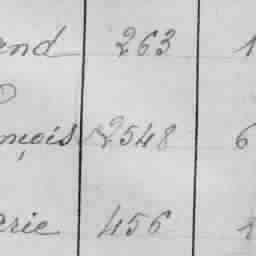 and 263 1
nçois 2548 6
erie 456 1